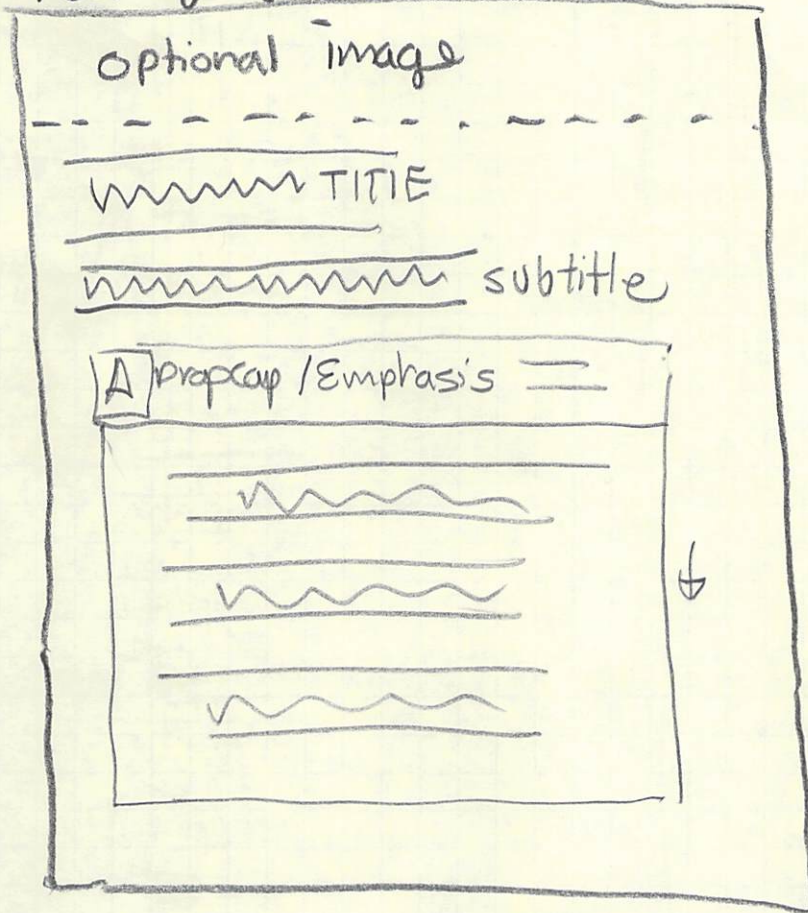 optional image
TITIE
subtitle
A Dropcap / Emphasis